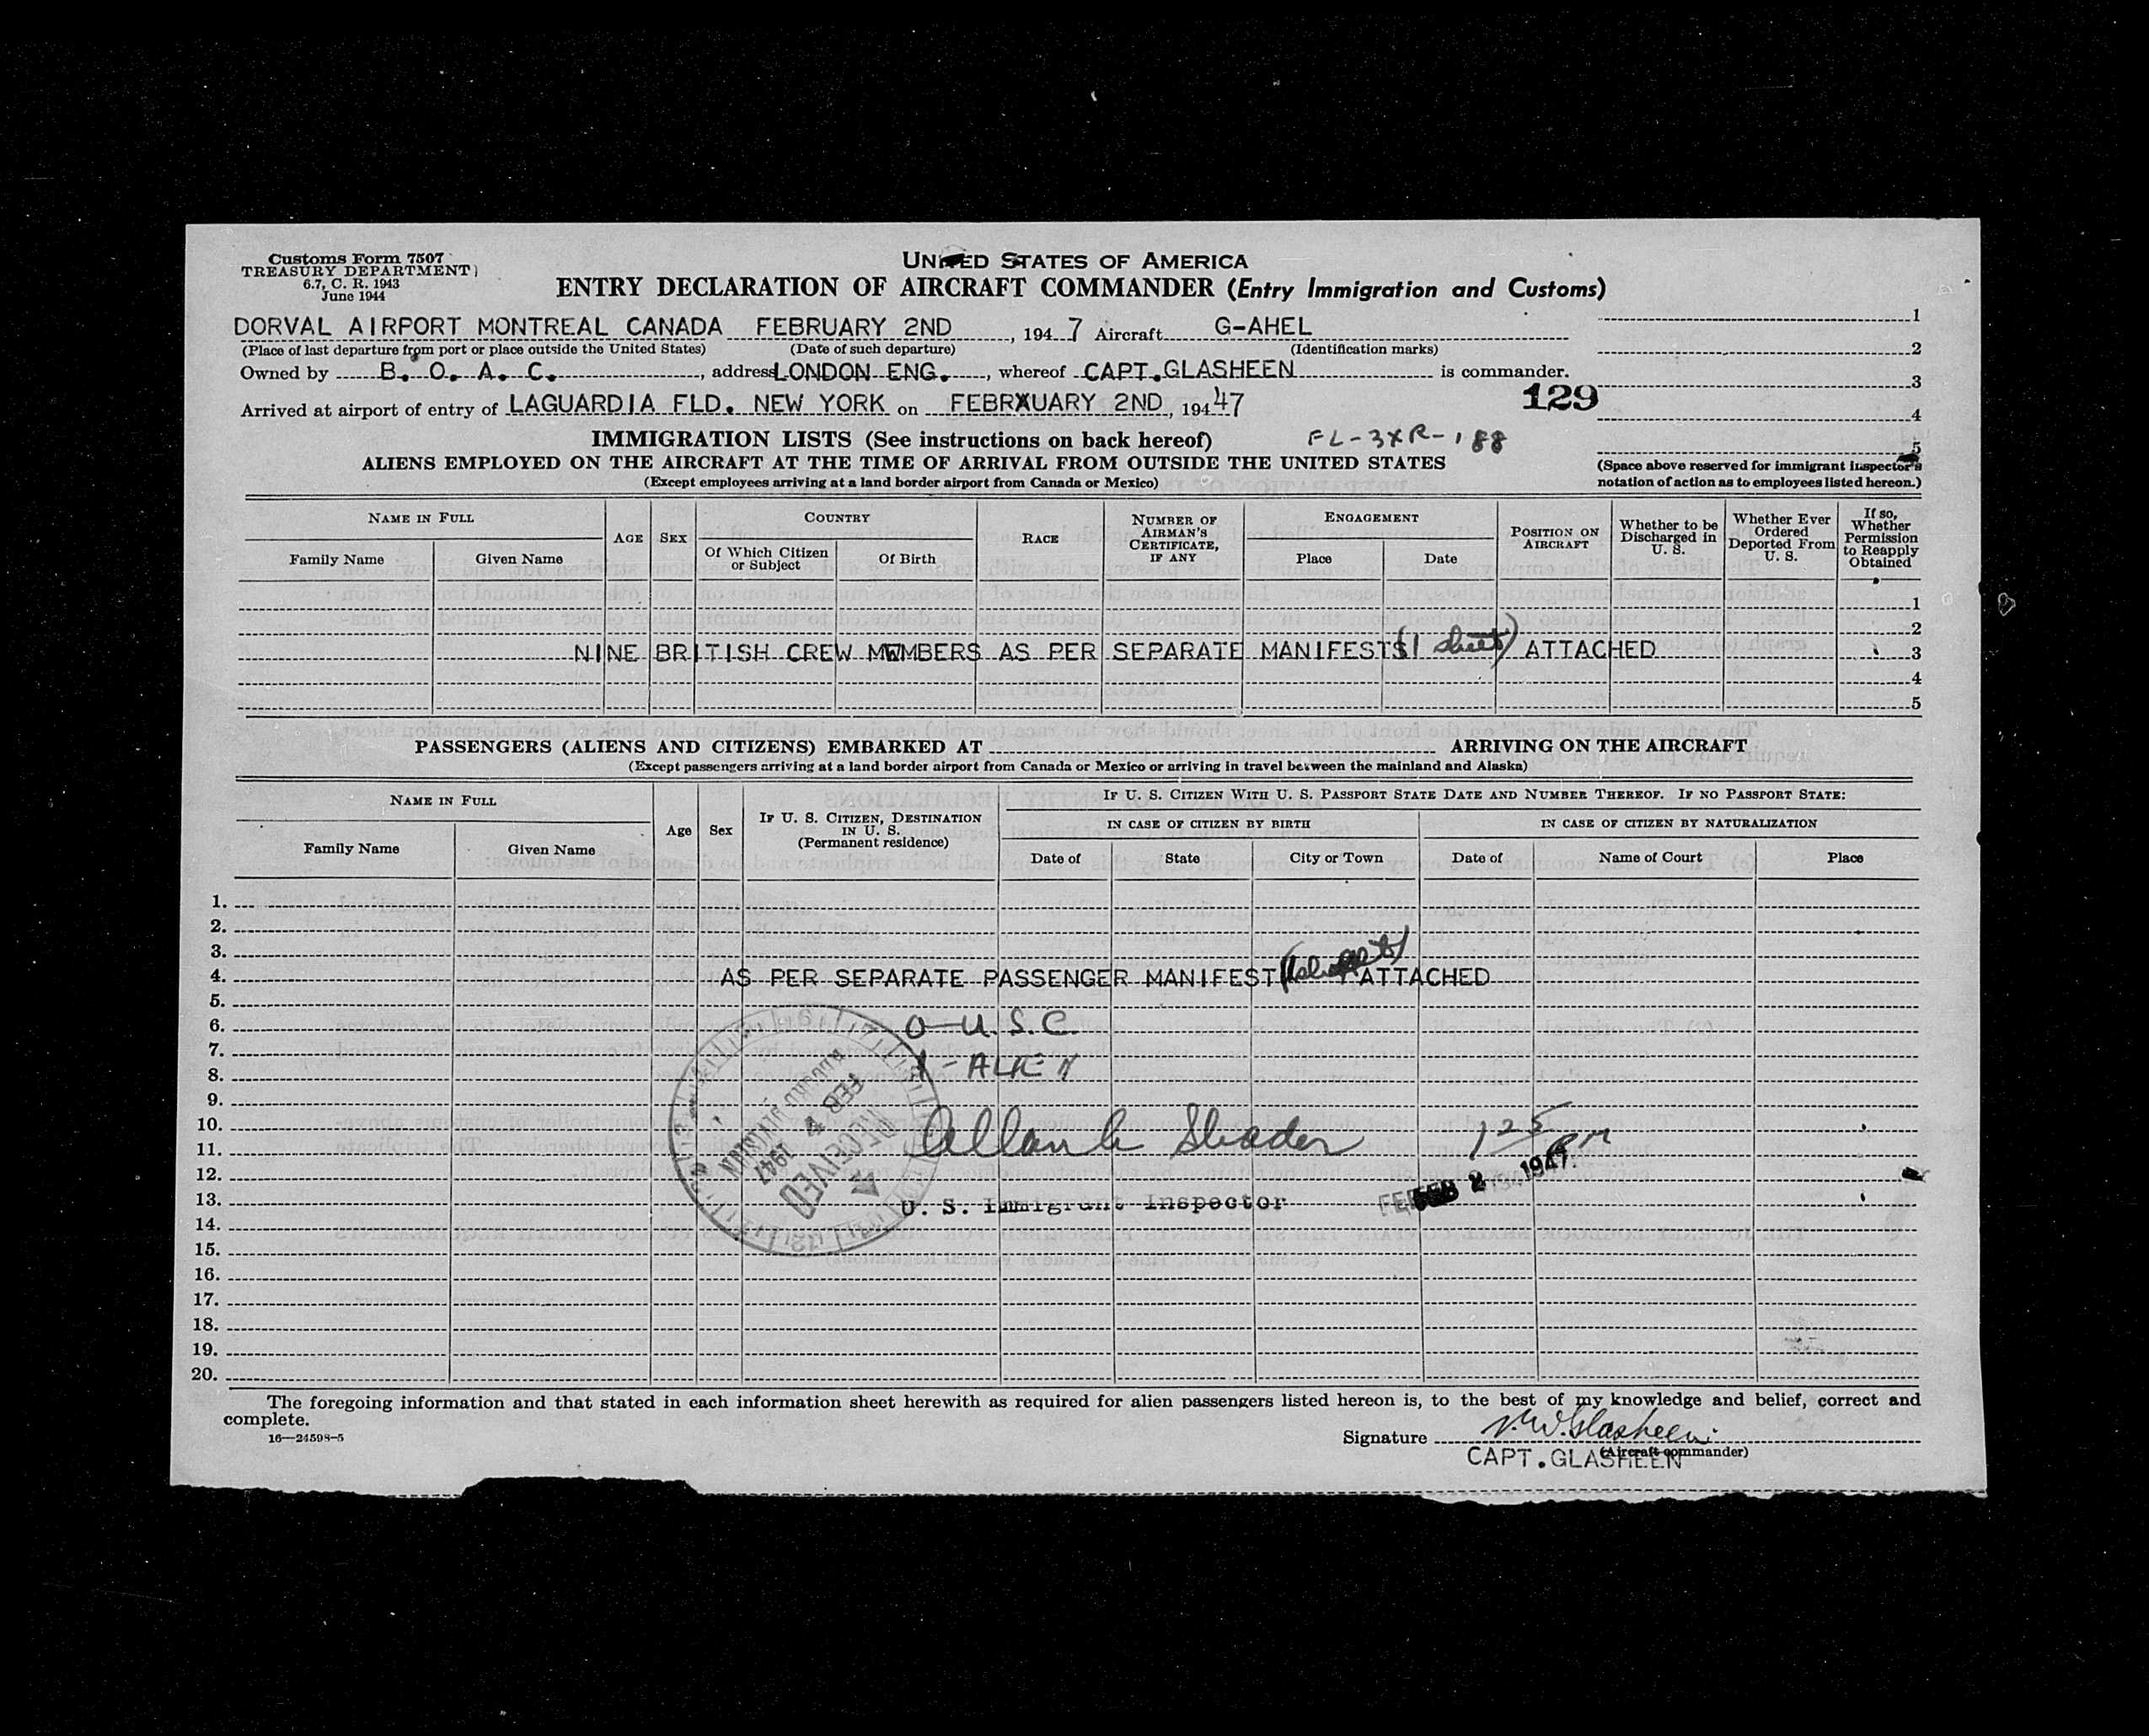 Customs Form 7507
TREASURY DEPARTMENT
6.7, C. R. 1943
June 1944
UNITED STATES OF AMERICA
ENTRY DECLARATION OF AIRCRAFT COMMANDER (Entry Immigration and Customs)
DORVAL AIRPORT MONTREAL CANADA FEBRUARY 2ND, 194 7 Aircraft G-AHEL
(Place of last departure from port or place outside the United States) (Date of such departure) (Identification marks)
Owned by B. O. A. C., address LONDON ENG., whereof CAPT.GLASHEEN is commander.
Arrived at airport of entry of LAGUARDIA FLD. NEW YORK on FEBRXUARY 2ND, 194 47
129
1
2
3
4
5
IMMIGRATION LISTS (See instructions on back hereof) FL-3XR-188
ALIENS EMPLOYED ON THE AIRCRAFT AT THE TIME OF ARRIVAL FROM OUTSIDE THE UNITED STATES
(Except employees arriving at a land border airport from Canada or Mexico)
(Space above reserved for immigrant inspector's
notation of action as to employees listed hereon.)
NAME IN FULL
Family Name Given Name
AGE SEX
COUNTRY
Of Which Citizen or Subject Of Birth
RACE
NUMBER OF AIRMAN'S CERTIFICATE, IF ANY
ENGAGEMENT
Place Date
POSITION ON AIRCRAFT
Whether to be Discharged in U. S.
Whether Ever Ordered Deported From U. S.
If so, Whether Permission to Reapply Obtained
1
2
NINE BRITISH CREW MEMBERS AS PER SEPARATE MANIFESTS (1 sheet) ATTACHED 3
4
5
PASSENGERS (ALIENS AND CITIZENS) EMBARKED AT ARRIVING ON THE AIRCRAFT
(Except passengers arriving at a land border airport from Canada or Mexico or arriving in travel between the mainland and Alaska)
NAME IN FULL
Family Name Given Name
Age Sex
IF U. S. CITIZEN, DESTINATION IN U. S. (Permanent residence)
IF U. S. CITIZEN WITH U. S. PASSPORT STATE DATE AND NUMBER THEREOF. IF NO PASSPORT STATE:
IN CASE OF CITIZEN BY BIRTH IN CASE OF CITIZEN BY NATURALIZATION
Date of State City or Town Date of Name of Court Place
1.
2.
3.
4. AS PER SEPARATE PASSENGER MANIFEST ATTACHED
5.
6. 0-U.S.C.
7.
8. -ALIEN
9.
10.
11. Shader 125 PM
12.
13. U. S. Immigrant Inspector FEB 2 1947
14.
15.
16.
17.
18.
19.
20.
RECEIVED
FEB 4 1947
The foregoing information and that stated in each information sheet herewith as required for alien passengers listed hereon is, to the best of my knowledge and belief, correct and
complete.
16—24598-5
Signature W. Glasheen
(Aircraft commander)
CAPT.GLASHEEN